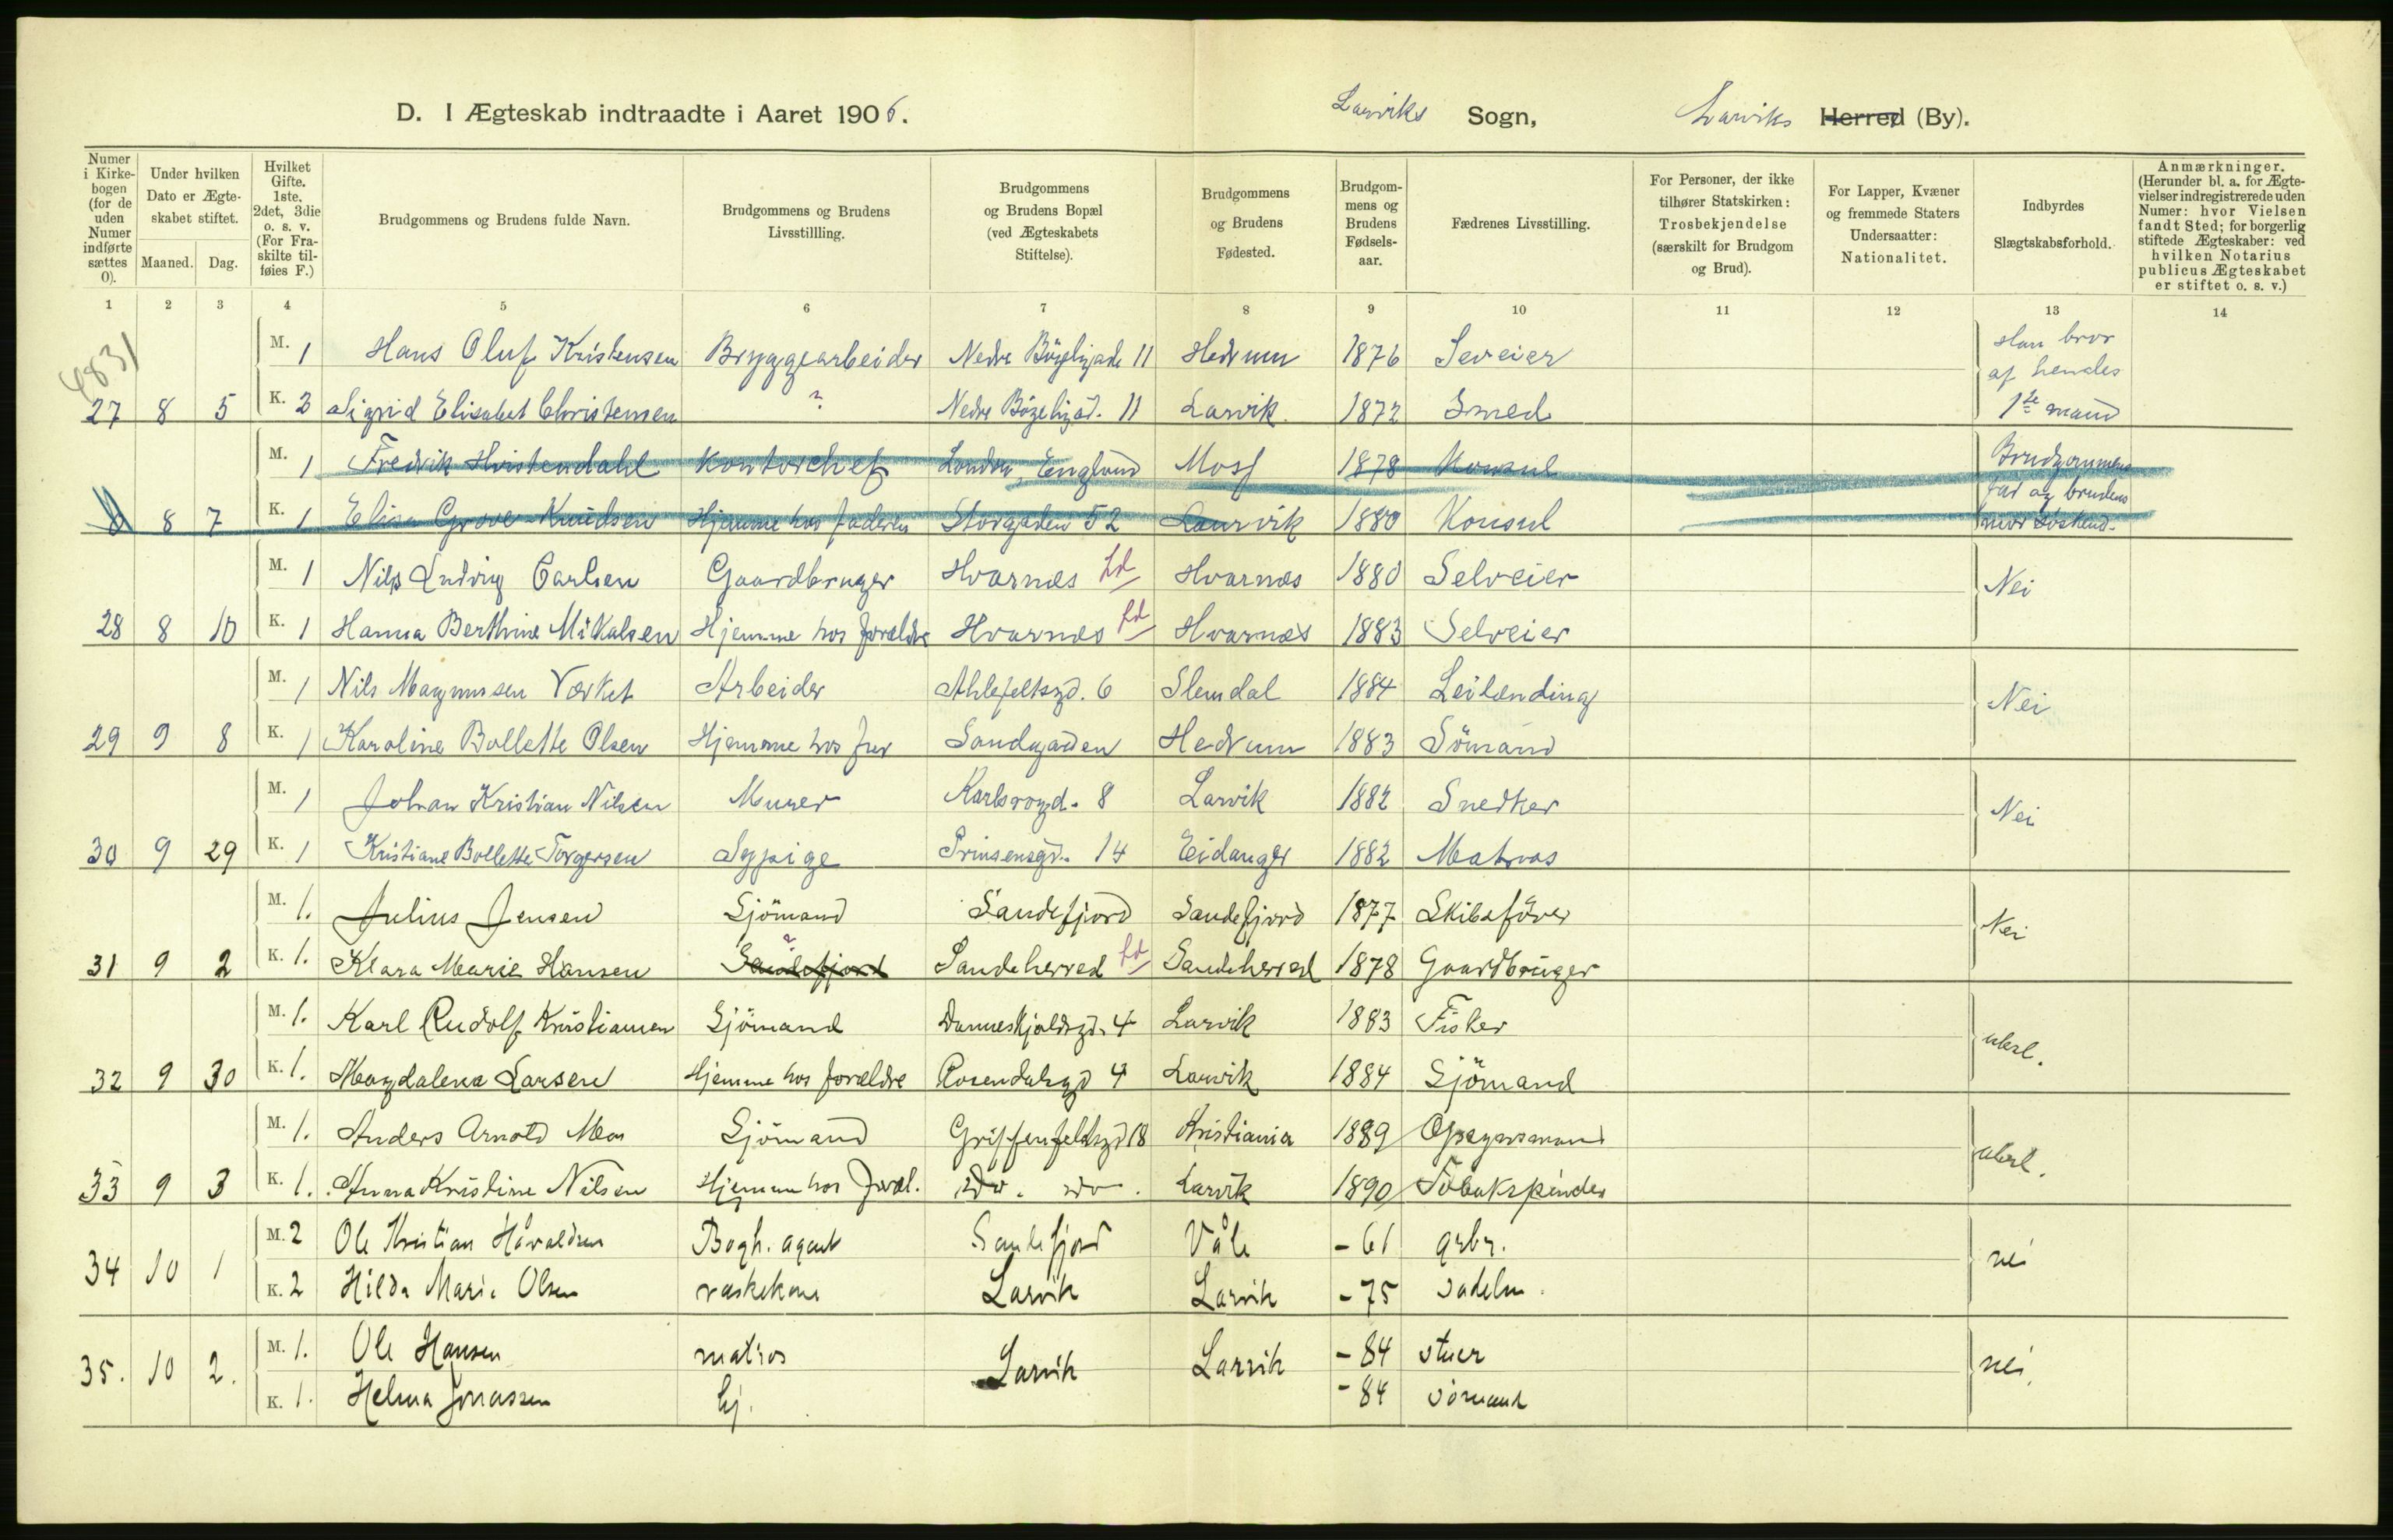 D. I Ægteskab indtraadte i Aaret 1906. Larviks Sogn, Larviks Herred (By).
Numer i Kirke-bogen (for de uden Numer indførte sættes 0).
Under hvilken Dato er Ægte-skabet stiftet.
Maaned. Dag.
Hvilket Gifte. 1ste, 2det, 3die o. s. v. (For Fra-skilte til-føies F.)
Brudgommens og Brudens fulde Navn.
Brudgommens og Brudens Livsstillling.
Brudgommens og Brudens Bopæl (ved Ægteskabets Stiftelse).
Brudgommens og Brudens Fødested.
Brudgom-mens og Brudens Fødsels-aar.
Fædrenes Livsstilling.
For Personer, der ikke tilhører Statskirken: Trosbekjendelse (særskilt for Brudgom og Brud).
For Lapper, Kvæner og fremmede Staters Undersaatter: Nationalitet.
Indbyrdes Slægtskabsforhold.
Anmærkninger. (Herunder bl. a. for Ægte-vielser indregistrerede uden Numer: hvor Vielsen fandt Sted; for borgerlig stiftede Ægteskaber: ved hvilken Notarius publicus Ægteskabet er stiftet o. s. v.)
1 2 3 4 5 6 7 8 9 10 11 12 13 14
4831
M. 1 Hans Oluf Kristensen Bryggearbeider Nedre Bögeligade 11 Hedrum 1876 Seveier Han bror af hendes
27 8 5 K. 2 Sigrid Elisabet Christensen ? Nedre Bögeligad. 11 Larvik 1872 Smed 1ste mand
M. 1 Fredrik Hvistendahl Kontorchef London, England Moss 1878 Konsul Brudgommens
0 8 7 K. 1 Elisa Grove-Knudsen Hjemme hos faderen Storgaden 52 Laurvik 1880 Konsul far og brudens mor Söskend.
M. 1 Nils Ludvig Carlsen Gaardbruger Hvarnes Ld Hvarnes 1880 Selveier Nei
28 8 10 K. 1 Hanna Berthine Mikalsen Hjemme hos forældre Hvarnes Ld Hvarnes 1883 Selveier
M. 1 Nils Magnussen Værket Arbeider Ahlefeltsgd. 6 Slemdal 1884 Leilænding Nei
29 9 8 K. 1 Karoline Bollette Olsen Hjemme hos far Sandgaden Hedrum 1883 Sömand
M. 1 Johan Kristian Nilsen Murer Karlsrogd. 8 Larvik 1882 Snedker Nei
30 9 29 K. 1 Kristiane Bollette Torgersen Sypige Prinsensgd. 14 Eidanger 1882 Matros
M. 1. Julius Jensen Sjömand Sandefjord Sandefjord 1877 Skibsförer Nei
31 9 2 K. 1. Klara Marie Hansen Sandefjord ? Sandeherred Ld Sandeherred 1878 Gaardbruger
M. 1. Karl Rudolf Kristiansen Sjömand Danneskjoldsgd. 4 Larvik 1883 Fisker ubesl.
32 9 30 K. 1. Magdalena Larsen Hjemme hos forældre Rosendalsgd 4 Larvik 1884 Sjömand
M. 1. Anders Arnold Moa Sjömand Griffenfeldtsgd 18 Kristiania 1889 Opsynsmand ubesl.
33 9 3 K. 1. Anna Kristine Nilsen Hjemme hos foræl. do. do. Larvik 1890 Tobakspinder
M. 2 Ole Kristian Håvaldsen Bogh. agent Sandefjord Våle - 61 grbr. nei
34 10 1 K. 2 Hilda Marie Olsen vaskekone Larvik Larvik - 75 sadelm.
M. 1. Ole Hansen matros Larvik Larvik - 84 stuer nei
35. 10 2. K. 1. Helma Jonassen hj. - 84 sömand